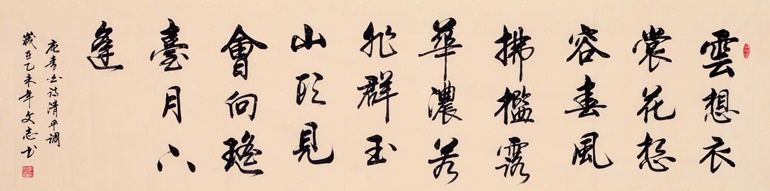 雲想衣
裳花想
容春風
拂檻露
華濃若
非群玉
山頭見
會向瑤
臺月下
逢
唐李白诗清平调
歲在乙未年文志书